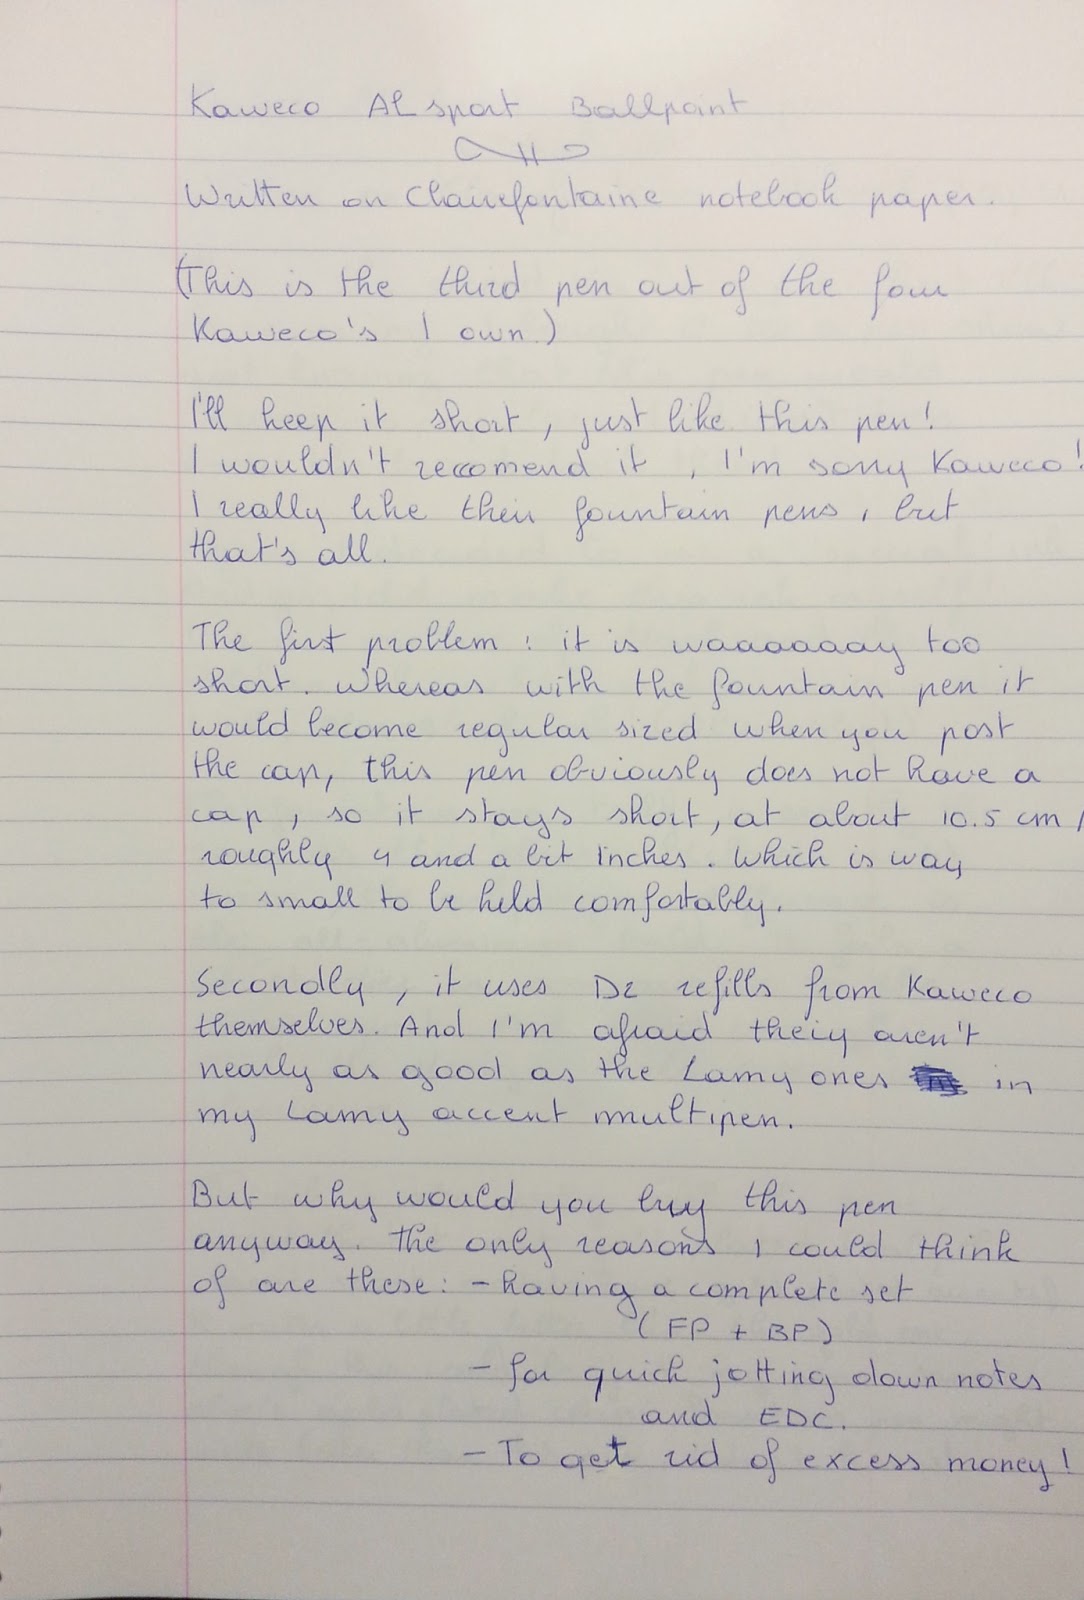 Kaweco AL sport Ballpoint
Written on Clairefontaine notebook paper.
(This is the third pen out of the four
Kaweco's I own.)
I'll keep it short, just like this pen!
I wouldn't reccomend it, I'm sorry Kaweco!
I really like their fountain pens, but
that's all.
The first problem: it is waaaaaaay too
short. Whereas with the fountain pen it
would become regular sized when you post
the cap, this pen obviously does not have a
cap, so it stays short, at about 10.5 cm,
roughly 4 and a bit inches. Which is way
to small to be held comfortably.
Secondly, it uses D2 refills from Kaweco
themselves. And I'm afraid theiy aren't
nearly as good as the Lamy ones in
my Lamy accent multipen.
But why would you buy this pen
anyway. The only reasons I could think
of are these: - having a complete set
(FP + BP)
- for quick jotting down notes
and EDC.
- To get rid of excess money!